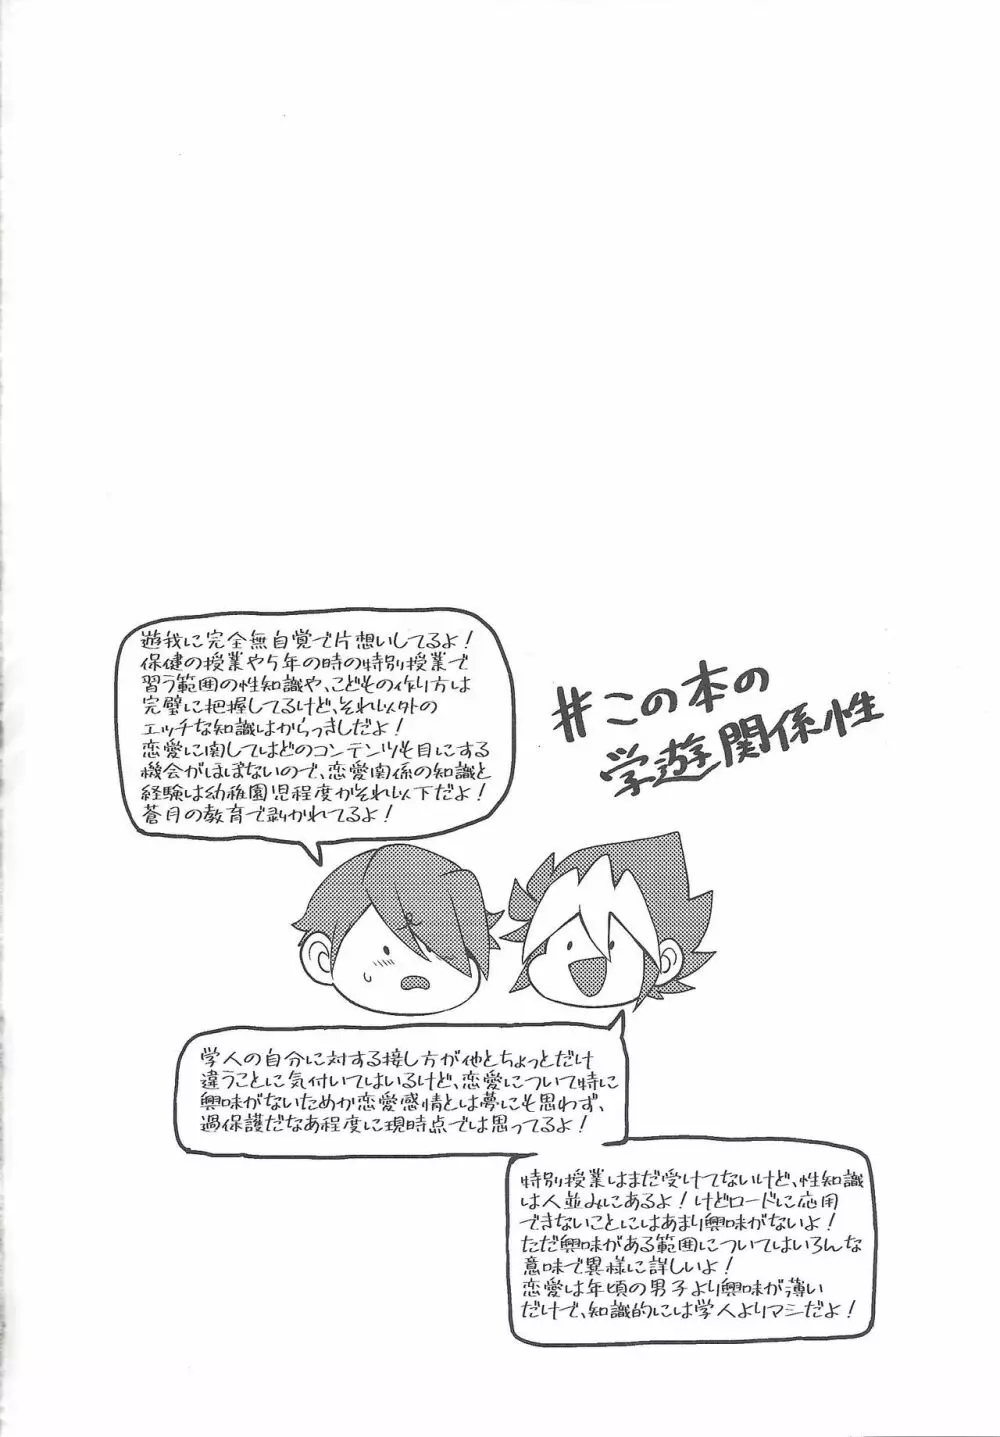 #この本の
学遊関係性
遊我に完全無自覚で片想いしてるよ！
保健の授業や5年の時の特別授業で
習う範囲の性知識や、こどもの作り方は
完璧に把握してるけど、それ以外の
エッチな知識はからっきしだよ！
恋愛に関してはどのコンテンツも目にする
機会がほぼないので、恋愛関係の知識と
経験は幼稚園児程度かそれ以下だよ！
蒼月の教育で剥かれてるよ！
学人の自分に対する接し方が他とちょっとだけ
違うことに気付いてはいるけど、恋愛について特に
興味がないためか恋愛感情とは夢にも思わず、
過保護だなあ程度に現時点では思ってるよ！
特別授業はまだ受けてないけど、性知識
は人並みにあるよ！けどロードに応用
できないことにはあまり興味がないよ！
ただ興味がある範囲についてはいろんな
意味で異様に詳しいよ！
恋愛は年頃の男子より興味が薄い
だけで、知識的には学人よりマシだよ！